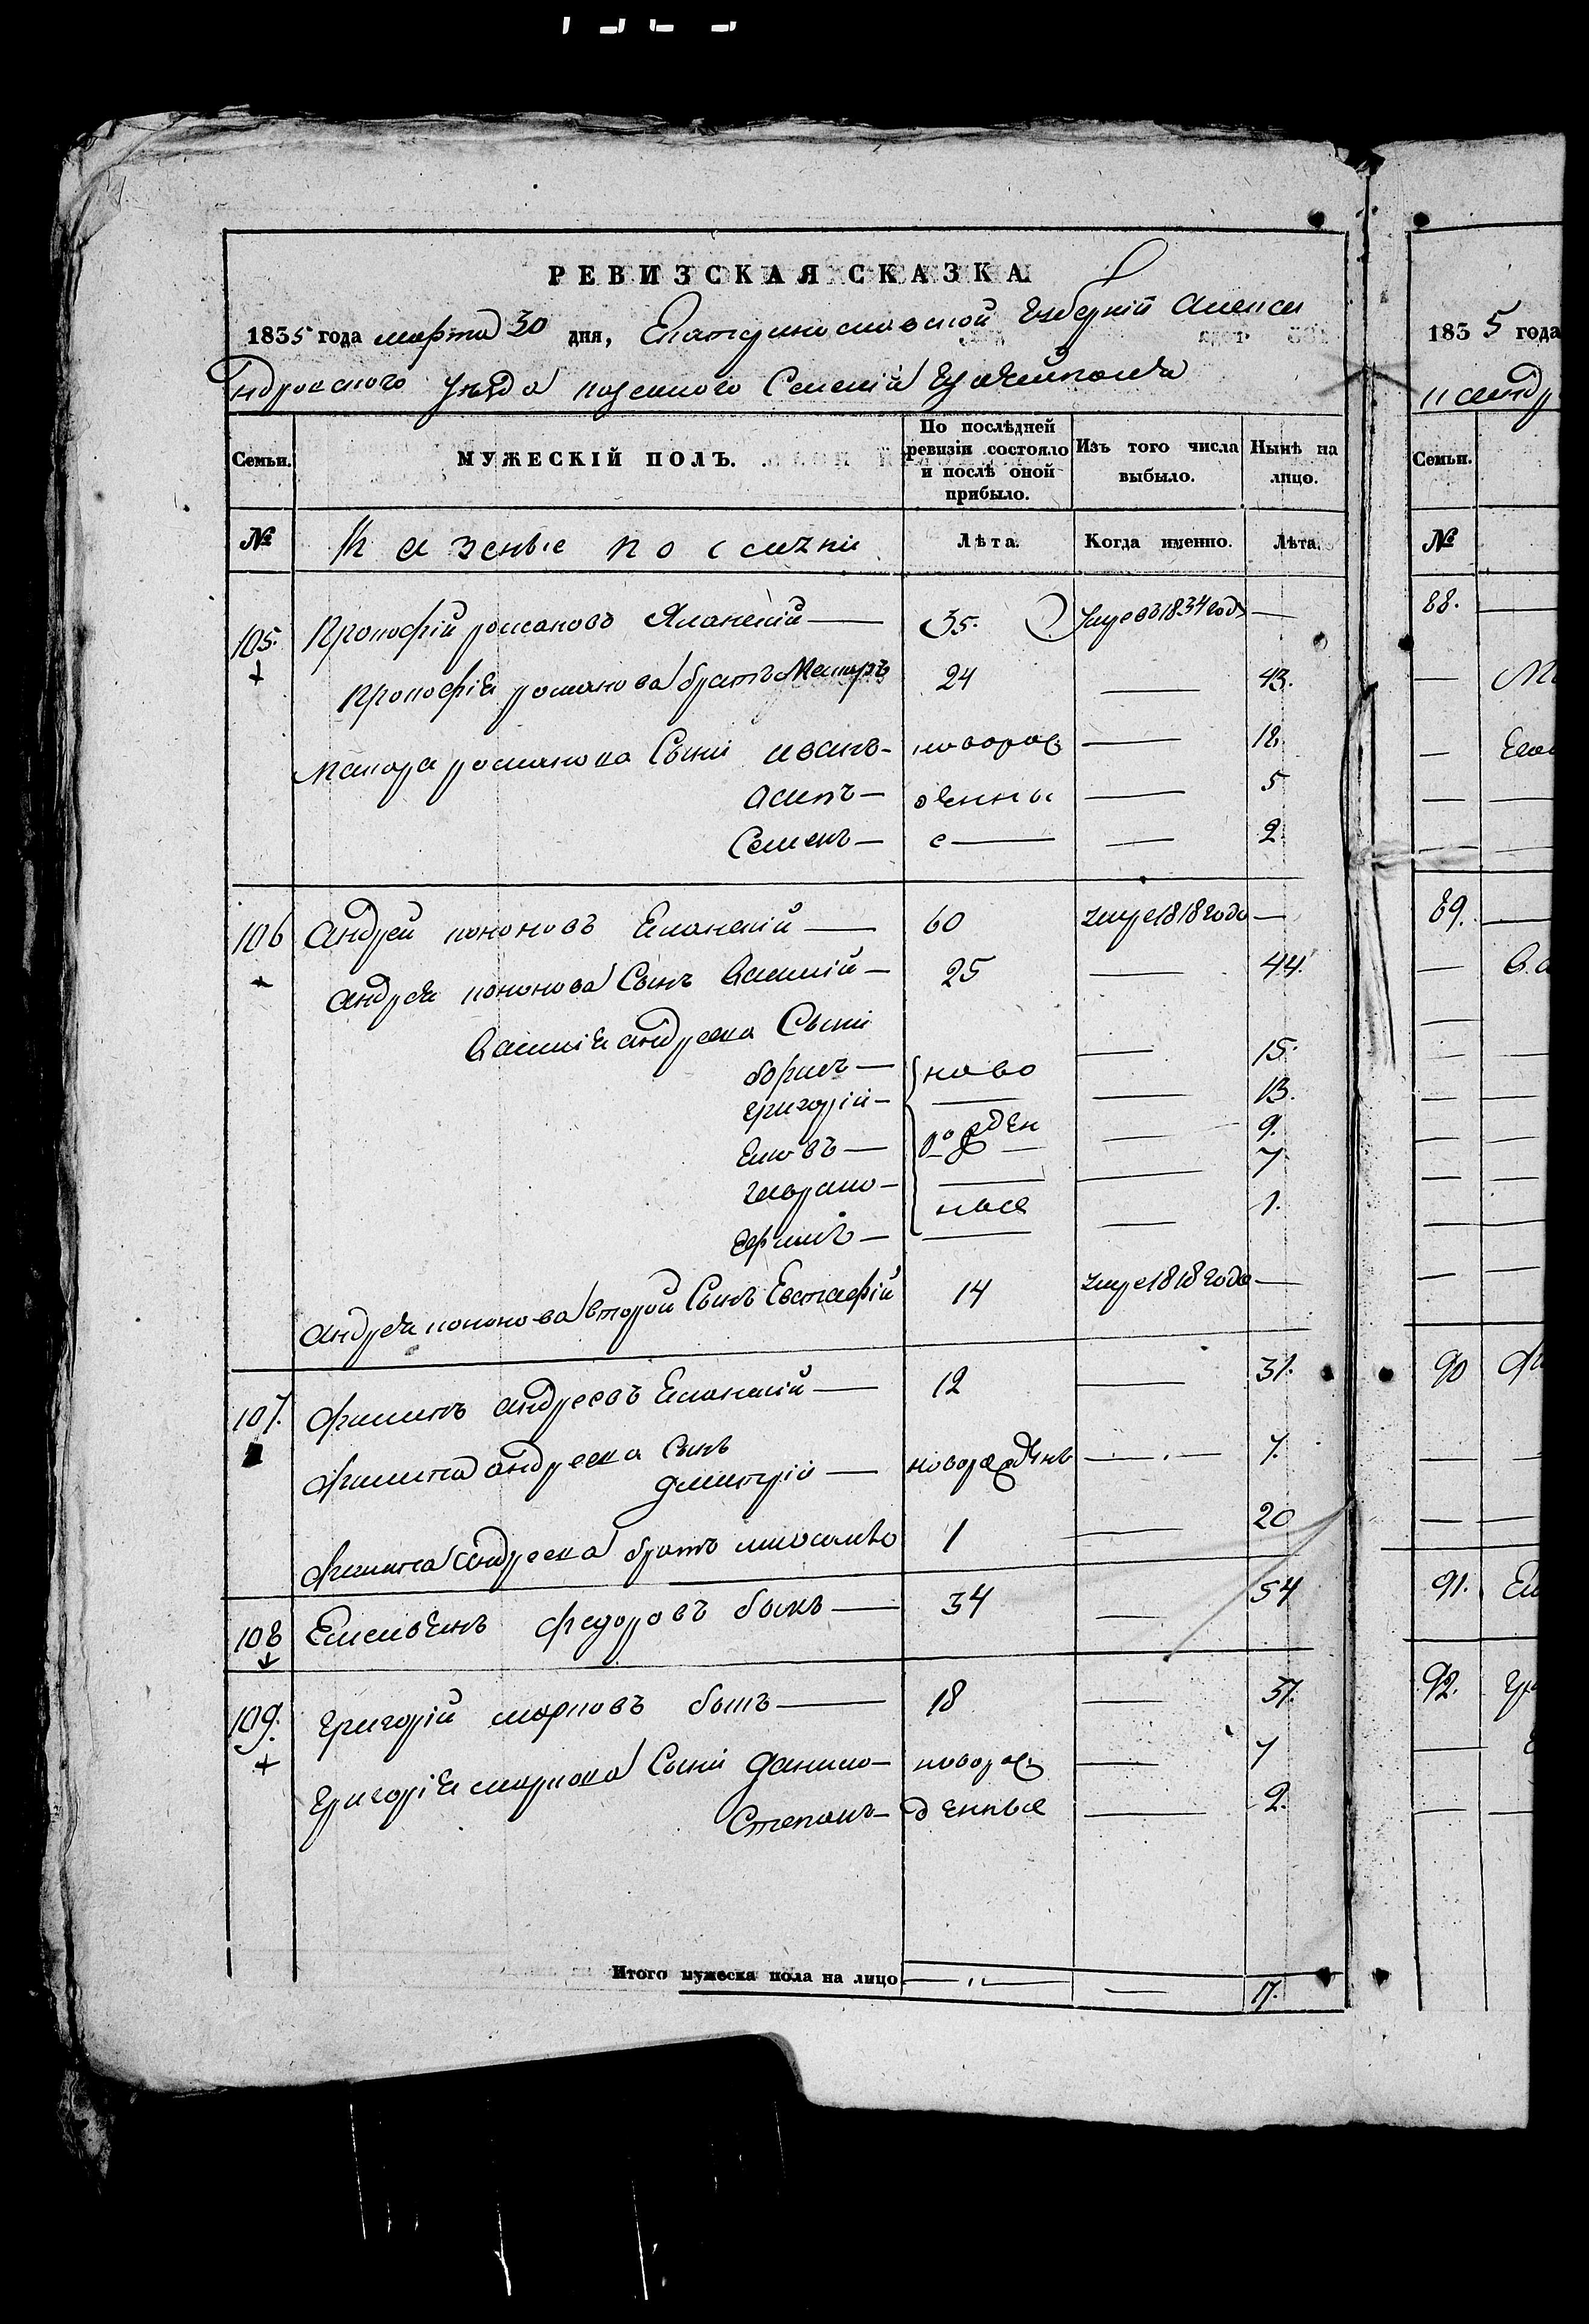 РЕВИЗСКАЯ СКАЗКА
1835 года марта 30 дня, Екатеринославской Губернiй Алекса
ндровского уезда казенного Селенiя
МУЖЕСКІЙ ПОЛЪ.
Семьи.
По послѣдней ревизіи состояло и послѣ оной прибыло.
Изъ того числа выбыло.
Нынѣ на лицо.
№
Казеные
Лѣта.
Когда именно.
Лѣта.
105. Прокофiй романовъ 35. умре въ 1834 году —
Прокофiя романова братъ Макаръ 24 — 43.
Макара романова Сыни иванъ — новорож — 12.
асипъ — денны — 5
Семенъ — е — — 2
106 Андрей кононовъ 60 умре 1818 года —
андрея кононова Сынъ Василiй — 25 — 44.
Василiя андреева Сыни
борисъ — ново — 15.
григорiй — — 13.
Яковъ — рожден — 9.
гаврило — — 7
ефимъ — ные — 1.
андрея кононова второй Сынъ Евстафiй 14 умре 1818 года —
107. филипъ андреевъ 12 — 31.
филипа андреева Сынъ
дмитрiй — новорожденъ — 7.
филипа андреева братъ михайло 1 — 20
108 Емельянъ федоровъ быкъ — 34 — 54
109. григорiй марковъ быкъ — 18 — 37.
григорiя маркова Сыни данило — новорож — 7
Степанъ — денные — 2.
Итого мужеска пола на лицо — — 17.
1835 года
Семьи.
№
88.
89.
90
91.
92.